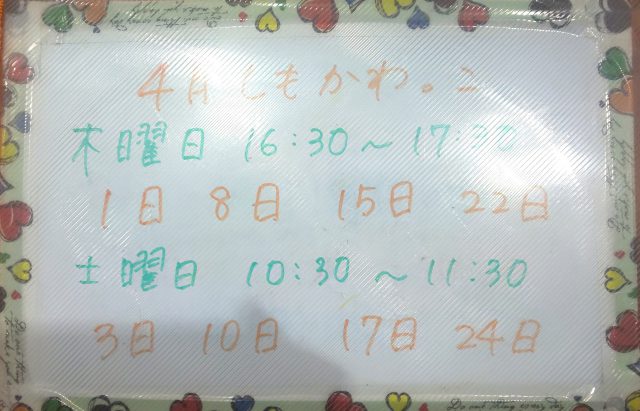 4月しもかわ。こ
木曜日 16:30～17:30
1日 8日 15日 22日
土曜日 10:30～11:30
3日 10日 17日 24日